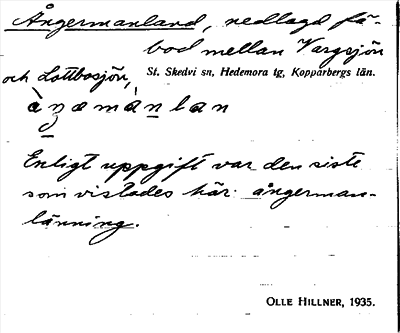 Ångermanland, nedlagd fä-
bod mellan Vargsjön
och Lottbosjön, St. Skedvi sn, Hedemora tg, Kopparbergs län.
Enligt uppgift var den siste
som vistades här ångerman-
länning.
OLLE HILLNER, 1935.